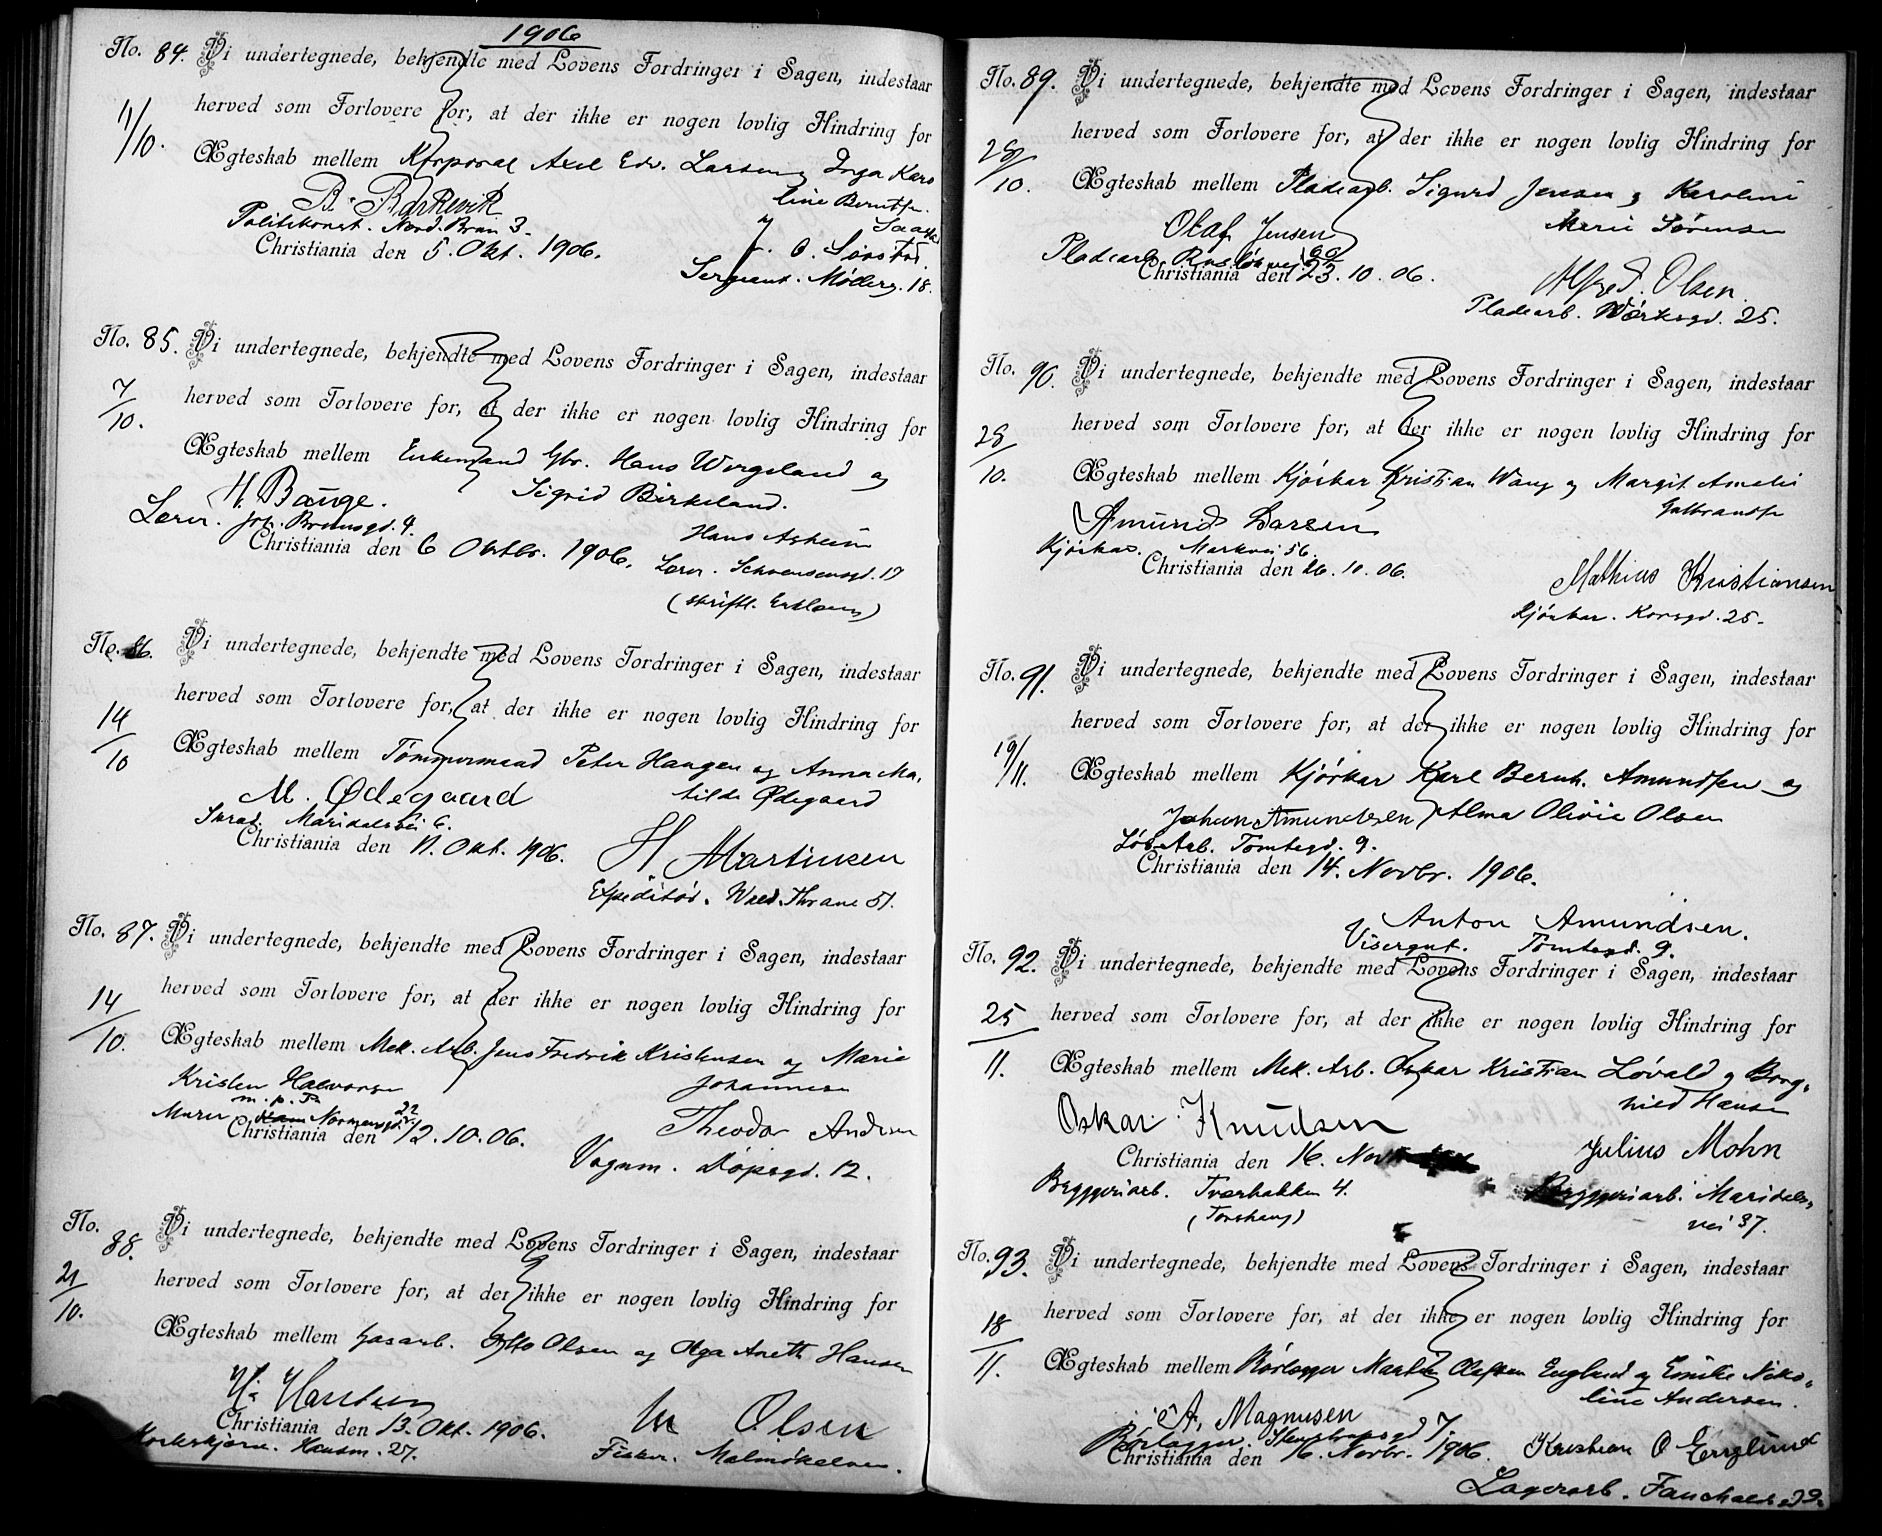 1906
No. 84. Vi undertegnede, bekjendte med Lovens Fordringer i Sagen, indestaar
11/10. herved som Forlovere for, at der ikke er nogen lovlig Hindring for
Ægteskab mellem Korporal Axel Edv. Larsen og Inga Karo
line Berntsen.
Politikonst. Nord. Brun 3.
Christiania den 5. Okt. 1906.
Sergeant. Møllerg. 18.
No. 85. Vi undertegnede, bekjendte med Lovens Fordringer i Sagen, indestaar
7/10. herved som Forlovere for, at der ikke er nogen lovlig Hindring for
Ægteskab mellem Enkemand Gbr. Hans Wergeland og
Sigrid Birkeland.
H. Bauge.
Lærer. Joh. Brunsgd. 4.
Hans Asheim
Christiania den 6 Oktbr. 1906.
Lærer. Schwensensgd. 17
(skriftl. Erklæring)
No. 86. Vi undertegnede, bekjendte med Lovens Fordringer i Sagen, indestaar
14/10 herved som Forlovere for, at der ikke er nogen lovlig Hindring for
Ægteskab mellem Tømmermand Peter Haugen og Anna Ma-
tilde Ødegaard
M. Ødegaard
Maridalsvei 6.
Christiania den 11. Okt. 1906.
H Martinsen
Expeditør. Wald. Thrane 51.
No. 87. Vi undertegnede, bekjendte med Lovens Fordringer i Sagen, indestaar
14/10. herved som Forlovere for, at der ikke er nogen lovlig Hindring for
Ægteskab mellem Mek. Arb. Jens Fredrik Kristensen og Marie
Johannesen
Kristen Halvorsen
m. p. P.
Murer Normannsgd. 22
Christiania den 12.10.06.
Theodor Andersen
Vognm. Døpsgd. 12.
No. 88. Vi undertegnede, bekjendte med Lovens Fordringer i Sagen, indestaar
21/10. herved som Forlovere for, at der ikke er nogen lovlig Hindring for
Ægteskab mellem Gasarb. Otto Olsen og Olga Anette Hansen
Christiania den 13. Okt. 1906.
Olsen
Hausm. 27.
Fisker. Malmøkalven.
No. 89. Vi undertegnede, bekjendte med Lovens Fordringer i Sagen, indestaar
28/10. herved som Forlovere for, at der ikke er nogen lovlig Hindring for
Ægteskab mellem Pladearb. Sigurd Jensen og Karoline
Marie Sørensen
Olaf Jensen
Pladearb. Rosløkvei
Christiania den 23.10.06.
Alfred. Olsen.
Pladearb. Værksgd. 25.
No. 90. Vi undertegnede, bekjendte med Lovens Fordringer i Sagen, indestaar
28/10. herved som Forlovere for, at der ikke er nogen lovlig Hindring for
Ægteskab mellem Kjørkar Kristian Wang og Margit Amalie
Gulbrandsen
Amund Larsen
Kjørkar. Markvei 56.
Christiania den 26.10.06.
Mathius Kristiansen
Kjørkar. Korsgd. 25.
No. 91. Vi undertegnede, bekjendte med Lovens Fordringer i Sagen, indestaar
herved som Forlovere for, at der ikke er nogen lovlig Hindring for
19/11. Ægteskab mellem Kjørkar Karl Bernh. Amundsen og
Johan Amundsen Alma Olivie Olsen
Løs Arb. Tomtegd. 9.
Christiania den 14. Novbr. 1906.
Anton Amundsen.
Visergut. Tomtegd. 9.
No. 92. Vi undertegnede, bekjendte med Lovens Fordringer i Sagen, indestaar
25/11. herved som Forlovere for, at der ikke er nogen lovlig Hindring for
Ægteskab mellem Mek. Arb. Oskar Kristian Løvald og Borg-
hild Hansen
Oskar Knudsen
Christiania den 16. Nov
Julius Mohn
Bryggeriarb. Tværbakken 4.
(Torshaug)
Bryggeriarb. Maridals-
vei 37.
No. 93. Vi undertegnede, bekjendte med Lovens Fordringer i Sagen, indestaar
18/11. herved som Forlovere for, at der ikke er nogen lovlig Hindring for
Ægteskab mellem Rørlægger Martin Olafsen Englund og Emilie Niko-
line Andersen.
A. Magnusen
Rørlægger.
Christiania den 16. Novbr. 1906.
Kristian O Englund
Lagerarb.